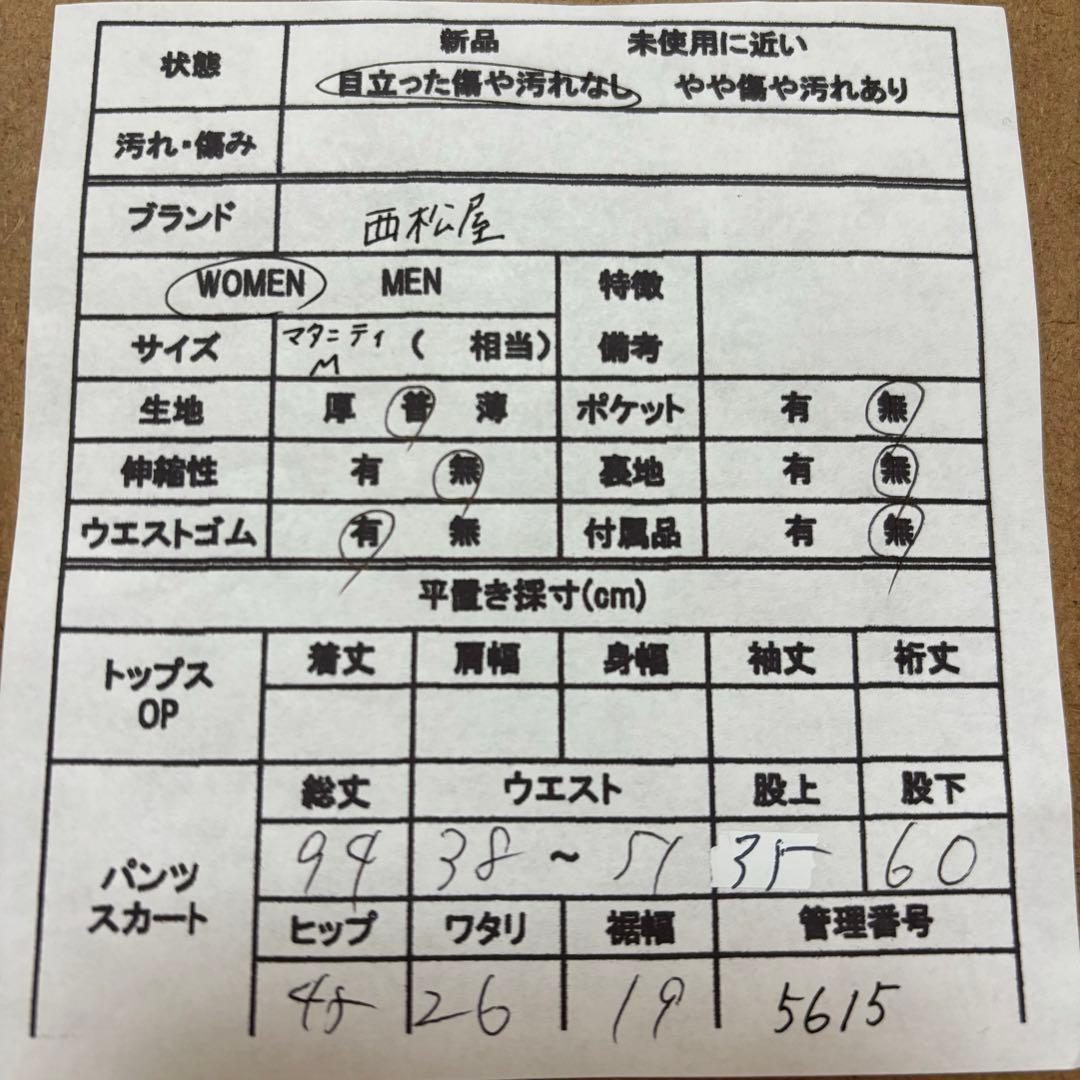 状態 新品 未使用に近い
目立った傷や汚れなし やや傷や汚れあり
汚れ・傷み
ブランド 西松屋
WOMEN MEN 特徴
サイズ マタニティ M ( 相当) 備考
生地 厚 普 薄 ポケット 有 無
伸縮性 有 無 裏地 有 無
ウエストゴム 有 無 付属品 有 無
平置き採寸(cm)
トップス OP 着丈 肩幅 身幅 袖丈 裄丈
パンツ スカート 総丈 ウエスト 股上 股下
94 38 ~ 51 35 60
ヒップ ワタリ 裾幅 管理番号
45 26 19 5615